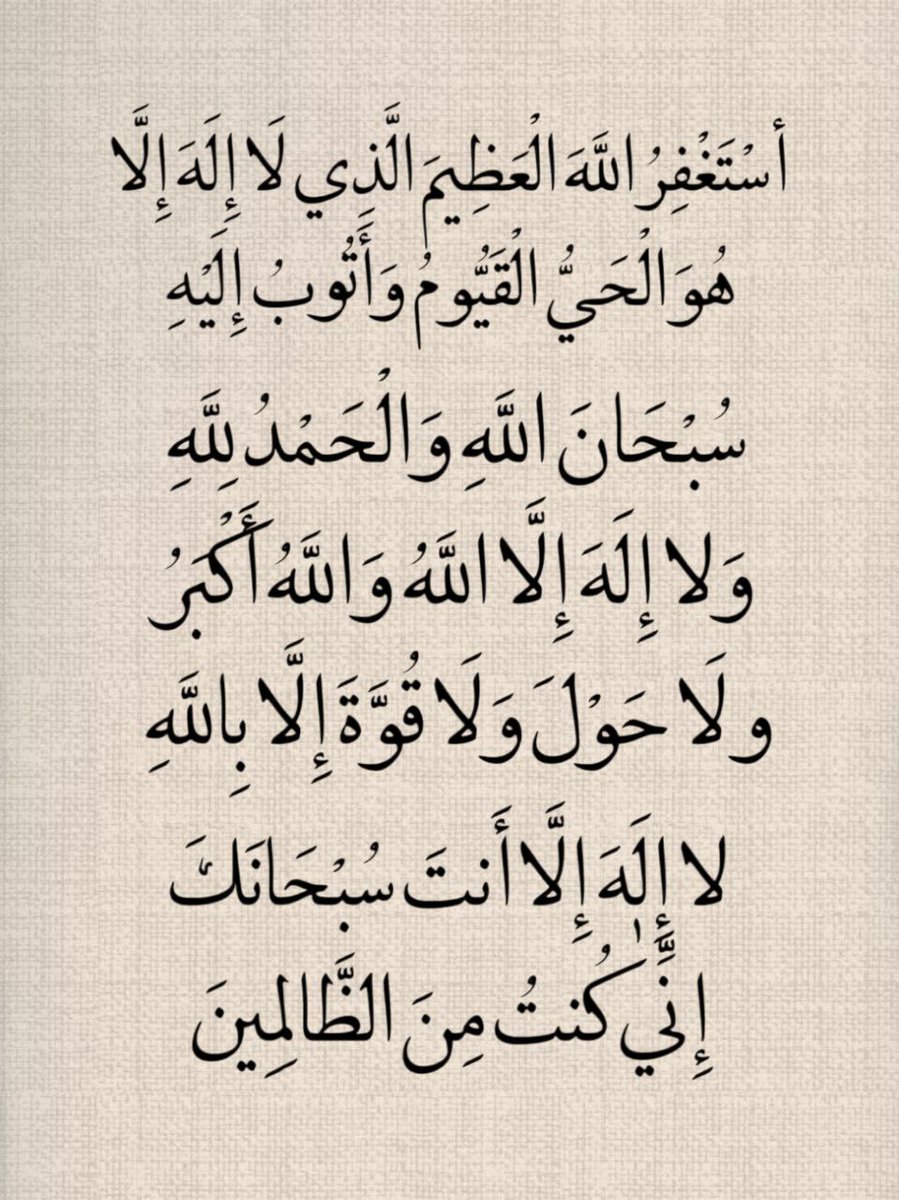 أسْتَغْفِرُ اللَّهَ الْعَظِيمَ الَّذِي لَا إِلَهَ إِلَّا
هُوَ الْحَيُّ الْقَيُّومُ وَأَتُوبُ إِلَيْهِ
سُبْحَانَ اللَّهِ وَالْحَمْدُ لِلَّهِ
وَلا إِلَهَ إِلَّا اللَّهُ وَاللَّهُ أَكْبَرُ
و لَا حَوْلَ وَلَا قُوَّةَ إِلَّا بِاللَّهِ
لا إِلَهَ إِلَّا أَنتَ سُبْحَانَكَ
إِنِّي كُنتُ مِنَ الظَّالِمِينَ